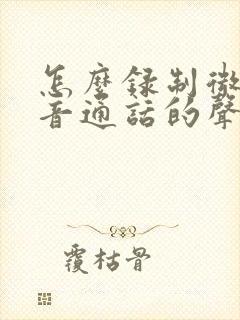 怎麼録制微
音通話的聲
覆枯骨